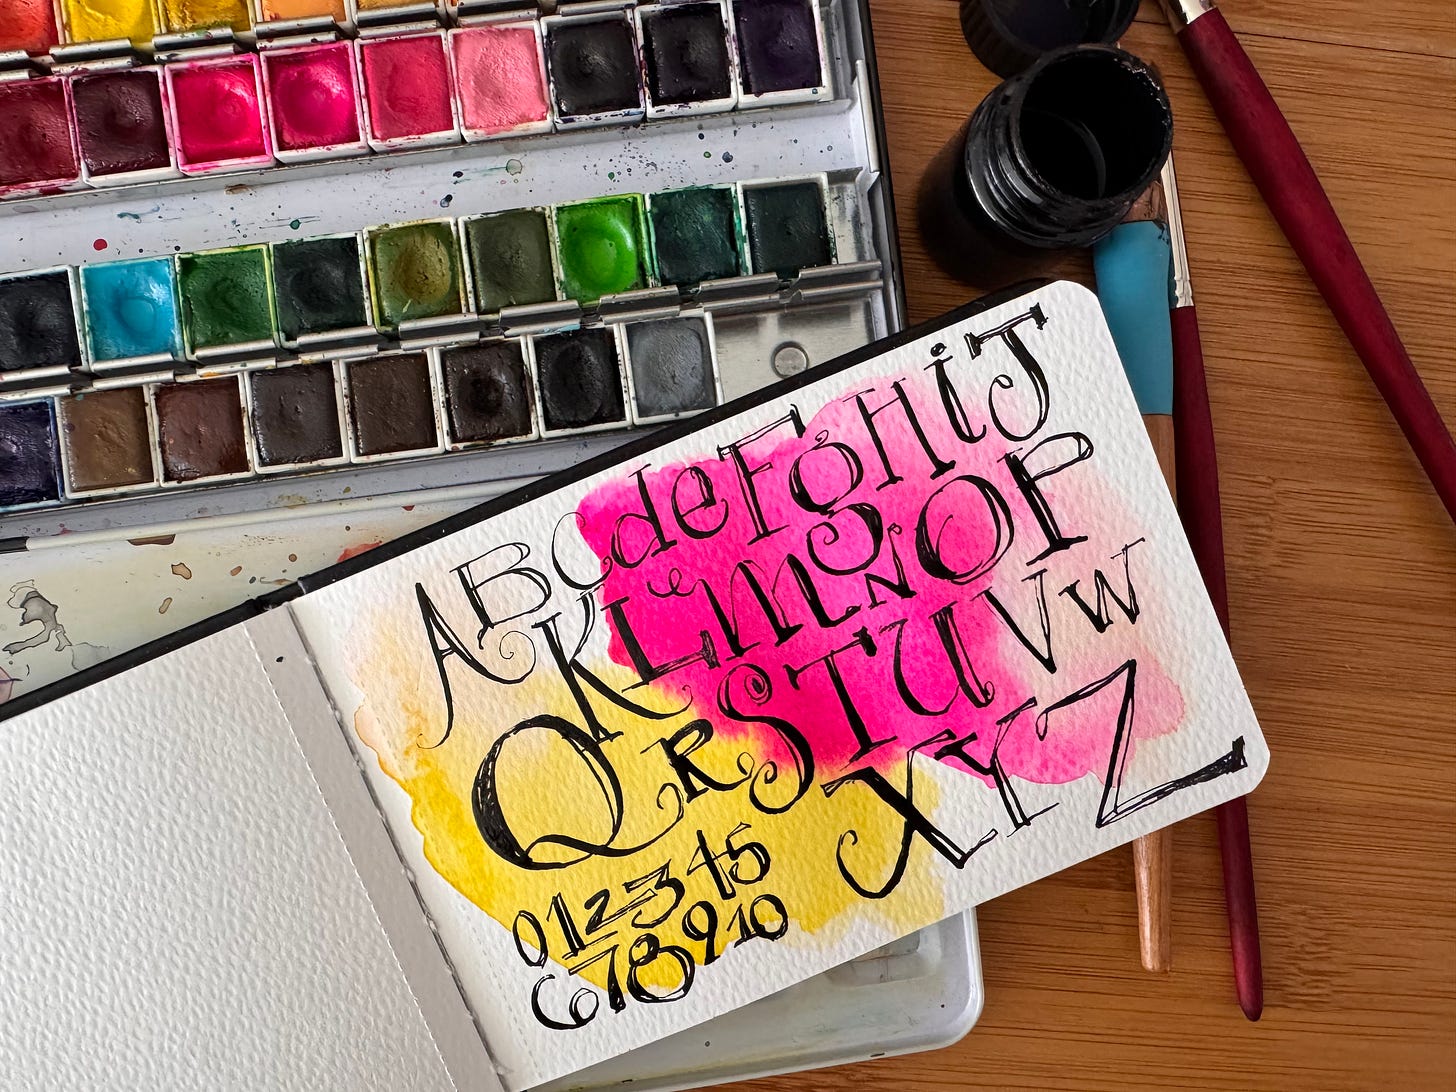 ABCdeFgHiJ
KLmNOP
QRSTUVW
XYZ
012345
678910